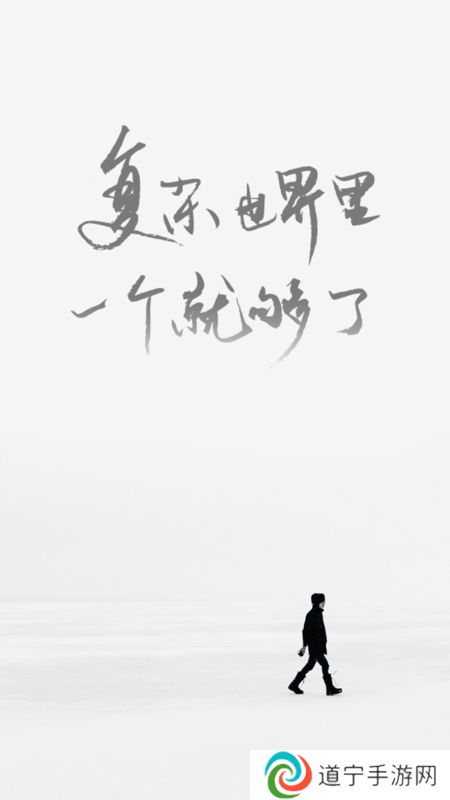 复杂世界里
一个就够了
道宁手游网